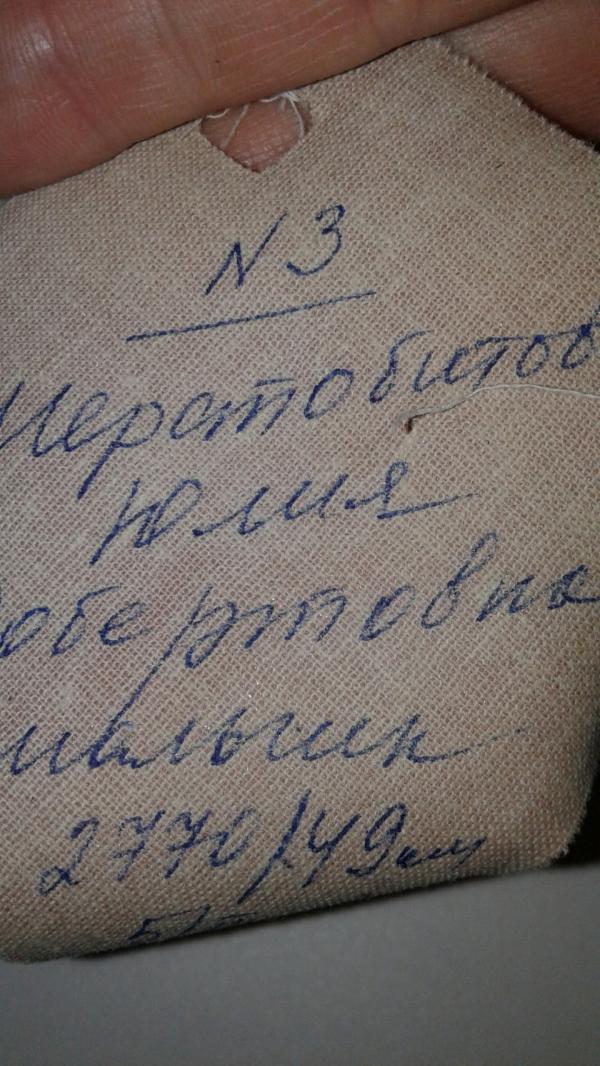 N 3
Шерстобитов
Юлия
Робертовна
мальчик
2770/49 см